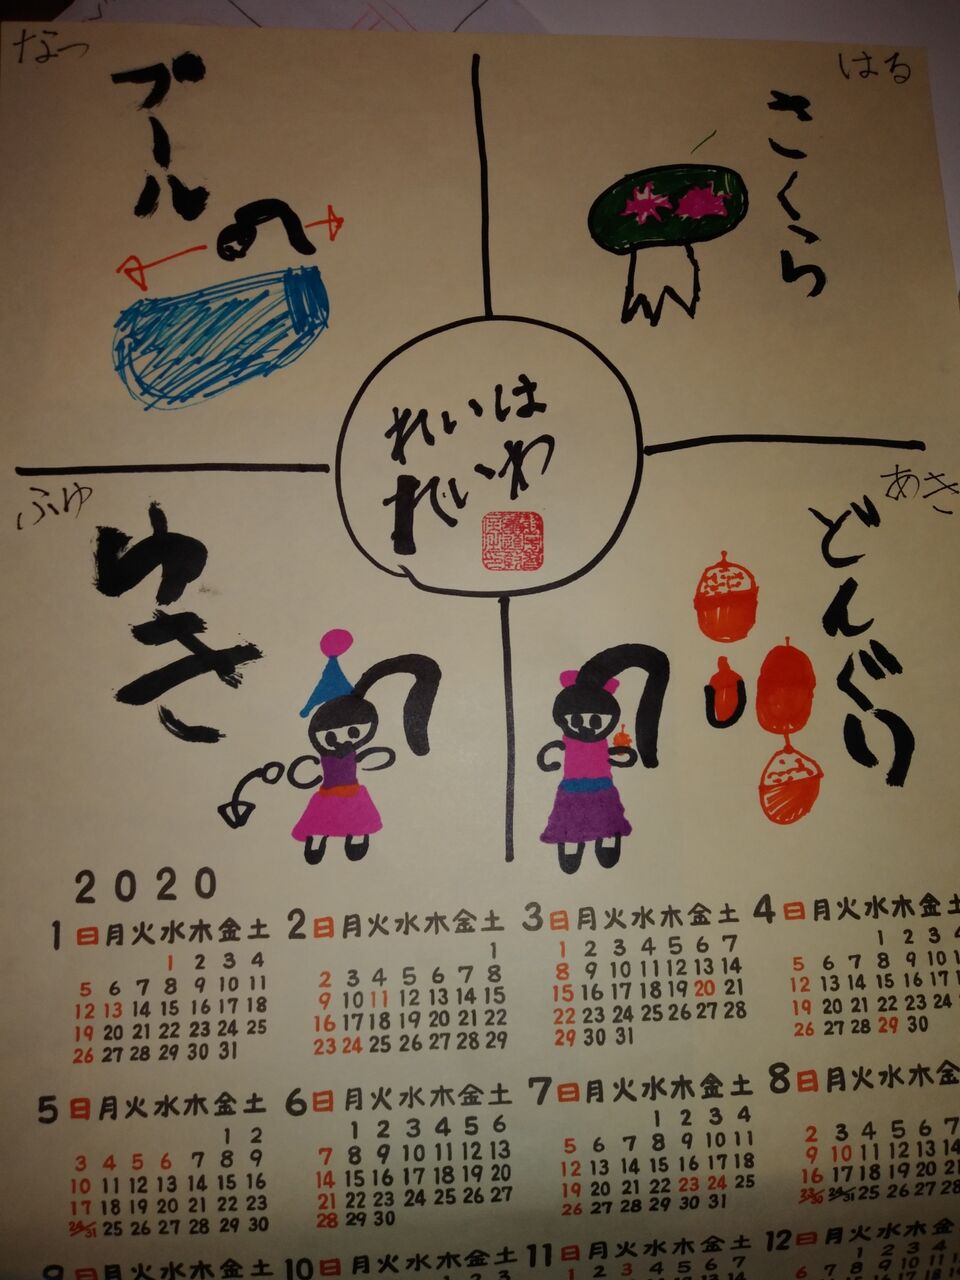 なつ
プール
はる
さくら
れいは
ふゆ
ゆき
あき
どんぐり
2020
1 日月火水木金土
1 2 3 4
5 6 7 8 9 10 11
12 13 14 15 16 17 18
19 20 21 22 23 24 25
26 27 28 29 30 31
2 日月火水木金土
1
2 3 4 5 6 7 8
9 10 11 12 13 14 15
16 17 18 19 20 21 22
23 24 25 26 27 28 29
3 日月火水木金土
1 2 3 4 5 6 7
8 9 10 11 12 13 14
15 16 17 18 19 20 21
22 23 24 25 26 27 28
29 30 31
4 日月火水木金
1 2 3
5 6 7 8 9 10
12 13 14 15 16 17
19 20 21 22 23 24
26 27 28 29 30
5 日月火水木金土
1 2
3 4 5 6 7 8 9
10 11 12 13 14 15 16
17 18 19 20 21 22 23
24/31 25 26 27 28 29 30
6 日月火水木金土
1 2 3 4 5 6
7 8 9 10 11 12 13
14 15 16 17 18 19 20
21 22 23 24 25 26 27
28 29 30
7 日月火水木金土
1 2 3 4
5 6 7 8 9 10 11
12 13 14 15 16 17 18
19 20 21 22 23 24 25
26 27 28 29 30 31
8 日月火水木金
2 3 4 5 6 7
9 10 11 12 13 14
16 17 18 19 20 21
23/30 24/31 25 26 27 28
9 日月火水木金土
10 日月火水木金土
1 2 3
11 日月火水木金土
1 2 3 4 5 6 7
12 日月火水木金
1 2 3 4